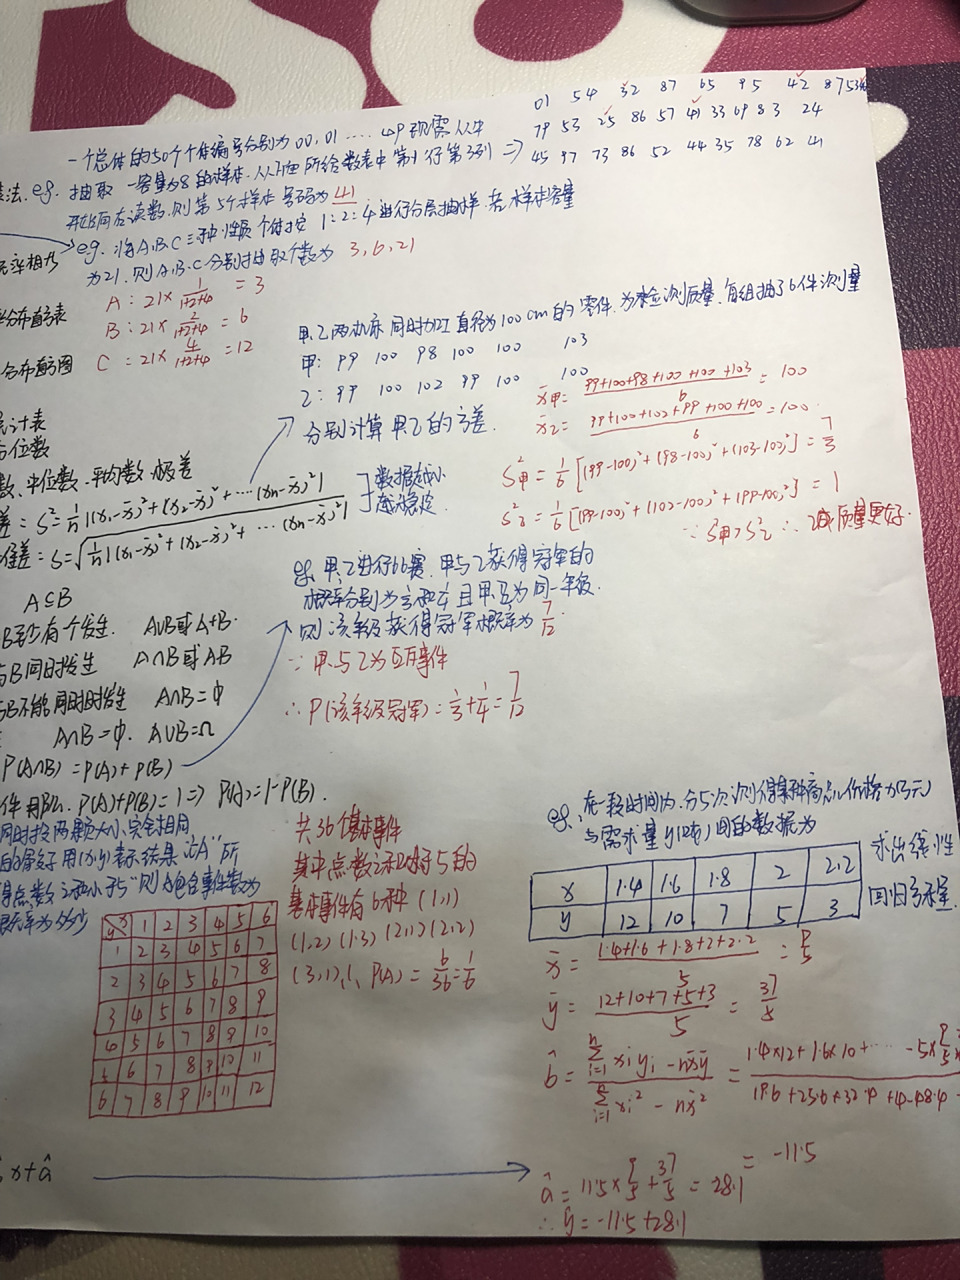 01 54 32 87 65 95 42 87 53
79 53 25 86 57 41 33 69 83 24
45 97 73 86 52 44 35 78 62 41
一个总体的50个个体编号分别为00,01 .... 49现需从中
法. eg. 抽取一容量为8的样本,从所给数表中第1行第3列 ⇒
开始向右读数,则第5个样本号码为 41
eg. 将A.B.C三种性质个体按 1:2:4进行分层抽样.若样本容量
为21.则A.B.C分别抽取个数为 3,6,21
A: 21×1/(1+2+4) = 3
B: 21×2/(1+2+4) = 6
C = 21×4/(1+2+4) = 12
分布直方图
统计表
位数
数、中位数、平均数、极差
差: S²=1/n[(x₁-x̄)²+(x₂-x̄)²+…(xn-x̄)²]
准差: S=√(1/n[(x₁-x̄)²+(x₂-x̄)²+…(xn-x̄)²])
数据越小
越稳定
甲.乙两机床同时加工直径为100cm的零件.为检测质量.每组抽了6件测量
甲: 99 100 98 100 100 103
乙: 99 100 102 99 100 100
分别计算甲乙的方差.
x̄甲= (99+100+98+100+100+103)/6 = 100
x̄乙= (99+100+102+99+100+100)/6 = 100
S²甲 = 1/6 [(99-100)²+(98-100)²+(103-100)²] = 7/3
S²乙 = 1/6 [(99-100)²+(102-100)²+(99-100)²] = 1
∵ S²甲>S²乙 ∴ 乙 质量更好.
A⊆B
B至少有个发生. A∪B或A+B.
与B同时发生 A∩B或AB
B不能同时发生 A∩B=φ
A∩B=φ. A∪B=Ω
P(A∩B)=P(A)+P(B)
P(A)+P(B)=1 ⇒ P(A)=1-P(B).
eg. 甲.乙进行比赛.甲与乙获得冠军的
概率分别为1/3和1/4且甲.乙为同一年级.
则该年级获得冠军概率为 7/12.
∵甲与乙为互斥事件
∴P(该年级冠军)=1/3+1/4=7/12
同时抛两颗大小完全相同
的骰子.用(x,y)表示结果.记“A”所
得点数之和小于5”则A包含事件数为
概率为多少
y x 1 2 3 4 5 6
1 2 3 4 5 6 7
2 3 4 5 6 7 8
3 4 5 6 7 8 9
4 5 6 7 8 9 10
5 6 7 8 9 10 11
6 7 8 9 10 11 12
共36个基本事件
其中点数之和小于5的
基本事件有6种 (1,1)
(1,2) (1,3) (2,1) (2,2)
(3,1), ∴ P(A) = 6/36 = 1/6
eg. 在一段时间内.分5次测得某种商品价格x(万元)
与需求量y(吨)间的数据为
x 1.4 1.6 1.8 2 2.2
y 12 10 7 5 3
求出线性
回归方程
x̄ = (1.4+1.6+1.8+2+2.2)/5 = 9/5
ȳ = (12+10+7+5+3)/5 = 37/5
b̂ = (Σⁿᵢ₌₁ xiyi - nx̄ȳ)/(Σⁿᵢ₌₁ xi² - nx̄²) = (1.4×12+1.6×10+…… -5×9/5
= -11.5
x+â
â = 11.5×9/5+37/5 = 28.1
∴ ŷ = -11.5+28.1